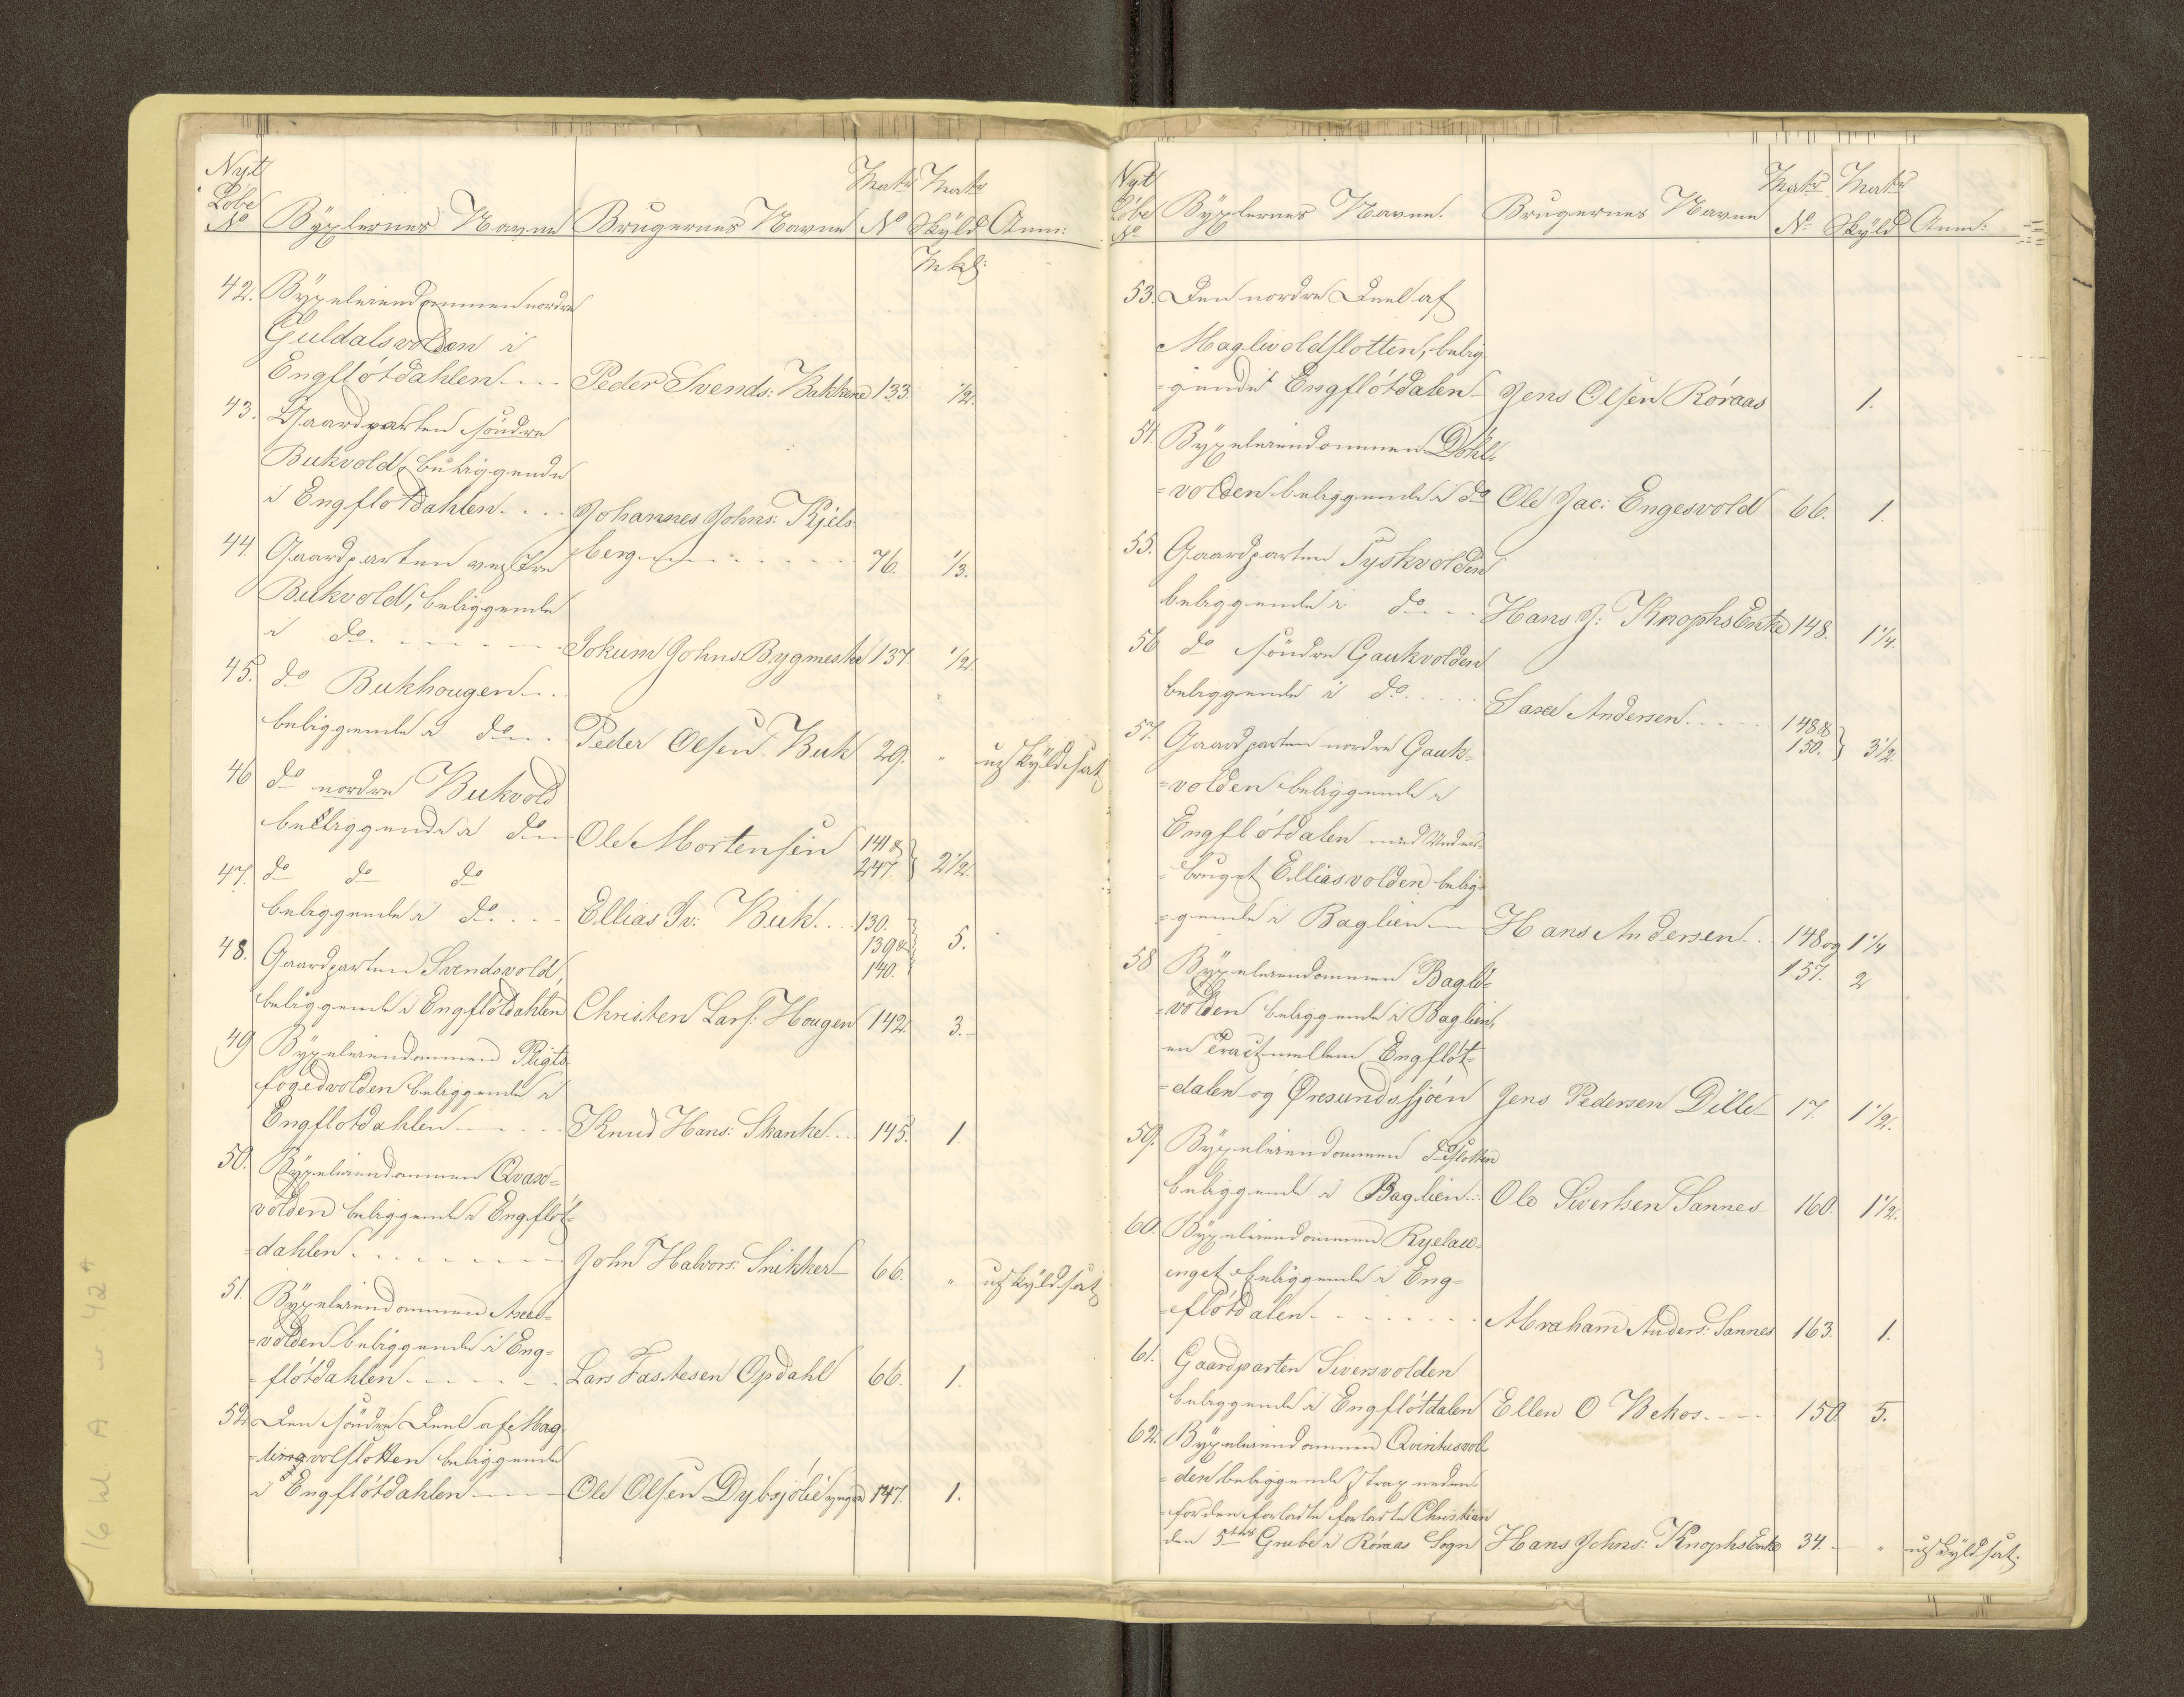 Nyt
Löbe
No
Byxlernes Navne
Brugernes Navne
Matr
No
Matr
Skyld
Anm:
Mk ß
42. Byxeleiendommen nordre
Guldalsvolden i
Engflötdahlen. . . . Peder Svends: Bakkene 133. 1/2.
43. Gaardparten söndre
Bukvold, beliggende
i Engflötdahlen. . . . Johannes Johns: Kjels
berg. . . . 76. 1/3.
44. Gaardparten vestre
Bukvold, beliggende
i do. . . . Jokum Johns: Bygmester 137. 1/2.
45. do Bukhougen. . .
beliggende i do. . . Peder Olsen Buk 29. " uskyldsat
46 do nordre Bukvold
beliggende i do Ole Mortensen 141 &
247. 2 1/2.
47. do do do
beliggende i do. . . . Ellias Iv: Buk. . . 130.
139 &
140. 5.
48. Gaardparten Svendsvold,
beliggende i Engflötdahlen Christen Lars: Hougen 142. 3.
49 Byxeleiendommen Pligts
fogedvolden beliggende i
Engflotdahlen . . . Knud Hans: Skanke. . . 145. 1.
50. Byxeleiendommen Qvas-
volden beliggende i Engflöt-
dahlen. . . . John Halvors: Snikker 66. " uskyldsat
51. Byxeleiendommen Axel-
=volden beliggende i Eng=
=flötdahlen. . . . Lars Fastesen Opdahl 66. 1.
52. Den söndre Deel af Mag
volslotten beliggende
i Engflötdahlen Ole Olsen Dybsjölie yngre 147. 1.
Nyt
Löbe
No
Byxlernes Navne.
Brugernes Navne
Matr
No
Matr
Skyld
Anm:
53. Den nordre Deel af
Maglivoldslotten, belig
=gende i Engflötdalen Jens Olsen Röraas 1.
54. Byxeleiendommen Döhl-
=volden beliggende i do Ole Jac: Engesvold 66. 1.
55. Gaardparten Tyskvolden
beliggende i do. . . Hans J: Knophs Enke 148. 1 1/4.
56 do söndre Gaukvolden
beliggende i do. . . . Saxe Andersen. . . . 148 &
150. 3 1/2.
57. Gaardparten nordre Gauk=
=volden beliggende i
Engflötdalen med Under
=bruget Elliasvolden belig
=gende i Baglien Hans Andersen. . 148 og 1 1/4
157. 2
58 Byxeleiendommen Bagli-
=volden beliggende i Baglien,
en Tract mellem Engflöt-
=dalen og Øresundssjöen Jens Pedersen Dille 17. 1 1/2.
59. Byxeleiendommen do slotten
beliggende i Baglien. . Ole Sivertsen Sannes 160. 1 1/2.
60. Byxeleiendommen Ryelau-
enget beliggende i Eng=
=flötdalen. . . . Abraham Anders: Sannes 163. 1.
61. Gaardparten Siversvolden
beliggende i Engflötdalen Ellen O Bekos. . . . 150 5.
62. Byxeleiendommen Qvintusvol
=den beliggende strax neden
=for den forladte forladte Christian
den 5tes Grube i Röraas Sogn Hans Johns: Knophs Enke 34. " uskyldsat.
16 hl. A nr. 42 4